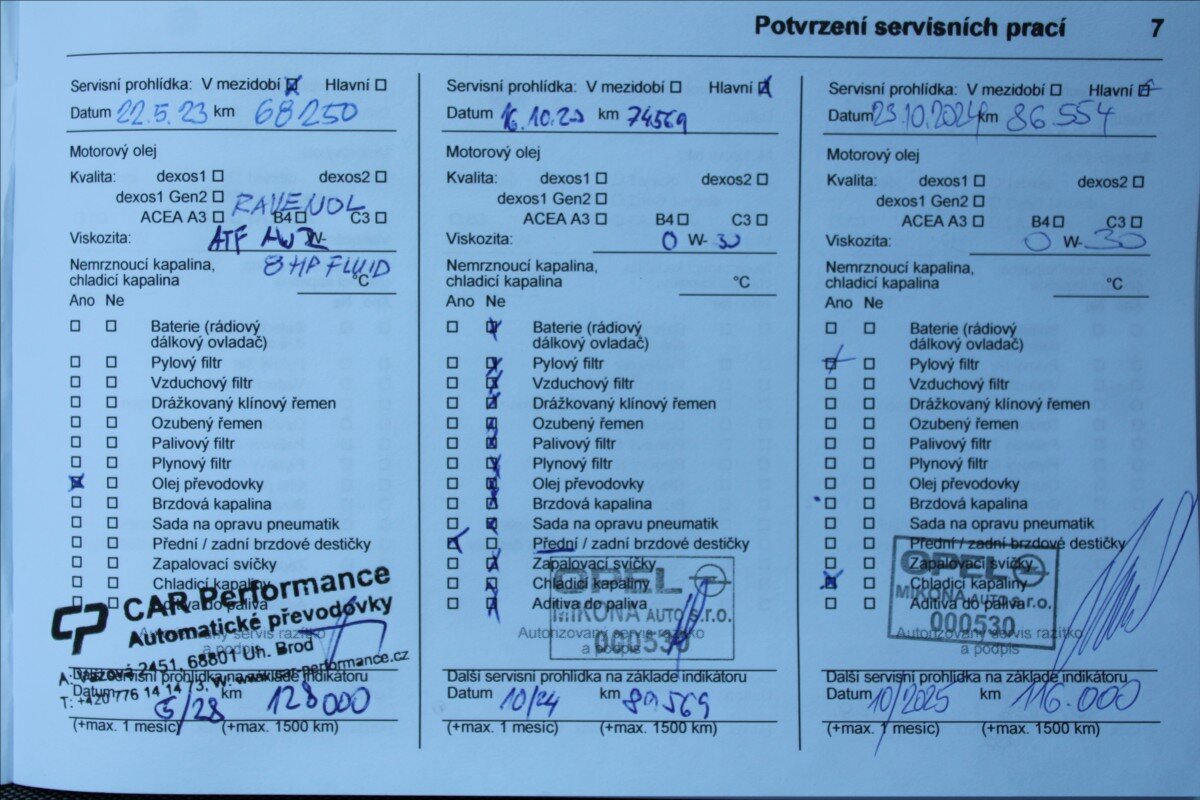 Potvrzení servisních prací 7
Servisní prohlídka: V mezidobí Hlavní
Datum 22.5.23 km 68250
Motorový olej
Kvalita: dexos1 dexos2
dexos1 Gen2
RAVENOL
ACEA A3 B4 C3
Viskozita: ATF W-
8HP FLUID
Nemrznoucí kapalina,
chladicí kapalina °C
Ano Ne
Baterie (rádiový
dálkový ovladač)
Pylový filtr
Vzduchový filtr
Drážkovaný klínový řemen
Ozubený řemen
Palivový filtr
Plynový filtr
Olej převodovky
Brzdová kapalina
Sada na opravu pneumatik
Přední / zadní brzdové destičky
Zapalovací svíčky
Chladicí kapaliny
Aditiva do paliva
CAR Performance
Automatické převodovky
Autorizovaný servis razítko
a podpis
A: Vazová 2451, 68801 Uh. Brod
T: +420 776 14 14 73, W: www.car-performance.cz
Další servisní prohlídka na základě indikátoru
Datum 5/28 km 128000
(+max. 1 měsíc) (+max. 1500 km)
Servisní prohlídka: V mezidobí Hlavní
Datum 16.10.23 km 74569
Motorový olej
Kvalita: dexos1 dexos2
dexos1 Gen2
ACEA A3 B4 C3
Viskozita: 0 W- 30
Nemrznoucí kapalina,
chladicí kapalina °C
Ano Ne
Baterie (rádiový
dálkový ovladač)
Pylový filtr
Vzduchový filtr
Drážkovaný klínový řemen
Ozubený řemen
Palivový filtr
Plynový filtr
Olej převodovky
Brzdová kapalina
Sada na opravu pneumatik
Přední / zadní brzdové destičky
Zapalovací svíčky
Chladicí kapaliny
Aditiva do paliva
OPEL
MIKONA AUTO s.r.o.
000530
Autorizovaný servis razítko
a podpis
Další servisní prohlídka na základě indikátoru
Datum 10/24 km 89569
(+max. 1 měsíc) (+max. 1500 km)
Servisní prohlídka: V mezidobí Hlavní
Datum 23.10.2024 km 86554
Motorový olej
Kvalita: dexos1 dexos2
dexos1 Gen2
ACEA A3 B4 C3
Viskozita: 0 W- 30
Nemrznoucí kapalina,
chladicí kapalina °C
Ano Ne
Baterie (rádiový
dálkový ovladač)
Pylový filtr
Vzduchový filtr
Drážkovaný klínový řemen
Ozubený řemen
Palivový filtr
Plynový filtr
Olej převodovky
Brzdová kapalina
Sada na opravu pneumatik
Přední / zadní brzdové destičky
Zapalovací svíčky
Chladicí kapaliny
Aditiva do paliva
OPEL
MIKONA AUTO s.r.o.
000530
Autorizovaný servis razítko
a podpis
Další servisní prohlídka na základě indikátoru
Datum 10/2025 km 116.000
(+max. 1 měsíc) (+max. 1500 km)